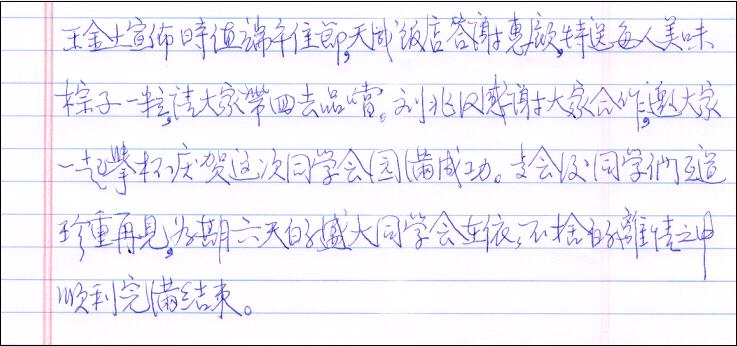 王金土宣佈時值端午佳節,天成飯店答謝惠顧,特送每人美味
粽子一粒,請大家帶回去品嚐。刘兆汉感謝大家合作,邀大家
一起擧杯庆贺这次同学会园满成功。宴会後同学們互道
珍重再見,為期六天的盛大同学会在依依不捨的離情之中
順利完满结束。